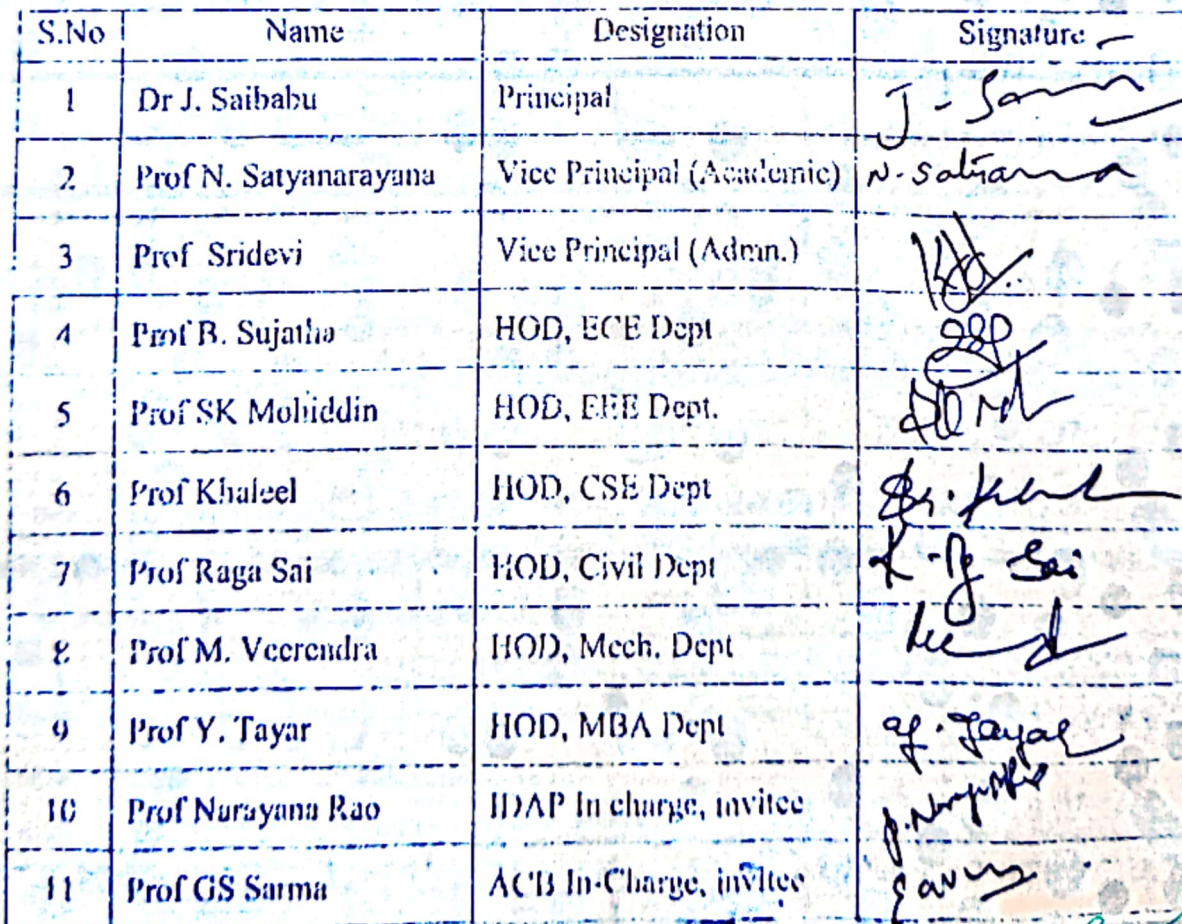 S.No Name Designation Signature
1 Dr J. Saibabu Principal
2 Prof N. Satyanarayana Vice Principal (Academic) N. Satyana
3 Prof Sridevi Vice Principal (Admn.)
4 Prof B. Sujatha HOD, ECE Dept
5 Prof SK Mohiddin HOD, EEE Dept.
6 Prof Khaleel HOD, CSE Dept
7 Prof Raga Sai HOD, Civil Dept Sai
8 Prof M. Veerendra HOD, Mech. Dept
9 Prof Y. Tayar HOD, MBA Dept Y. Tayar
10 Prof Narayana Rao IDAP In charge, invitee
11 Prof GS Sarma ACB In-Charge, invitee